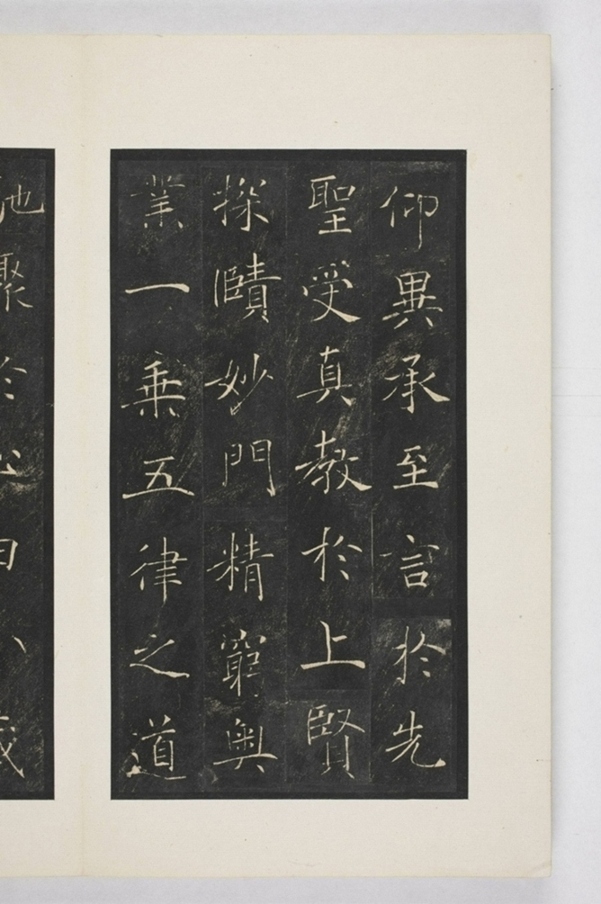 仰異承至言於先
聖受真教於上賢
探賾妙門精窮奥
業一乗五律之道